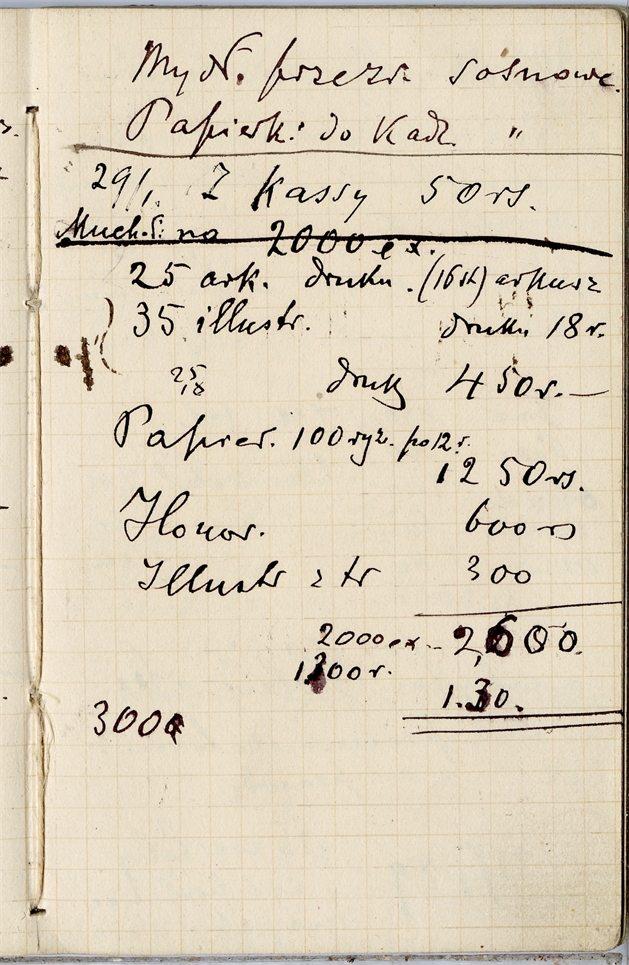 Mydł. przezr. sosnowe.
Papierk. do Kadz. "
29/1. Z Kassy 50 rs.
na 2000 ex.
25 ark. druku. (16 st) arkusz
35 illustr. druku 18 r.
25
18
druk 450 r.—
Papier. 100 ryz. po 12 r.
1250 rs.
Honor. 600 rs
Illustr z tr 300
2000 ex - 2,600.
1300 r.
1.30.
3000